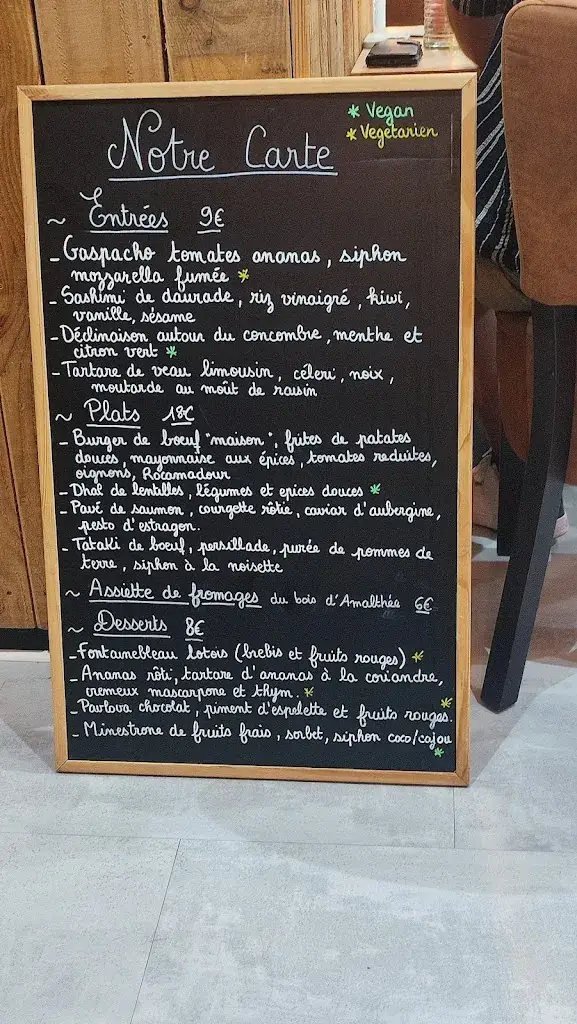 * Vegan
* Végétarien
Notre Carte
~ Entrées 9€
- Gaspacho tomates ananas, siphon
mozzarella fumée *
- Sashimi de daurade, riz vinaigré, kiwi,
vanille, sésame
- Déclinaison autour du concombre, menthe et
citron vert *
- Tartare de veau limousin, céleri, noix,
moutarde au moût de raisin
~ Plats 18€
- Burger de boeuf "maison", frites de patates
douces, mayonnaise aux épices, tomates réduites,
oignons, Rocamadour
- Dhal de lentilles, légumes et epices douces *
- Pavé de saumon, courgette rôtie, caviar d'aubergine,
pesto d'estragon.
- Tataki de boeuf, persillade, purée de pommes de
terre, siphon à la noisette
~ Assiette de fromages du bois d'Amalthée 6€
~ Desserts 8€
- Fontainebleau lotois (brebis et fruits rouges) *
- Ananas rôti, tartare d'ananas à la coriandre,
cremeux mascarpone et thym. *
- Pavlova chocolat, piment d'espelette et fruits rouges. *
- Minestrone de fruits frais, sorbet, siphon coco/cajou
*